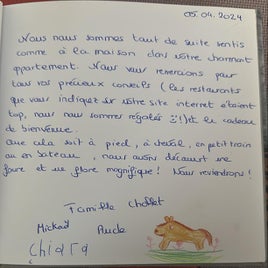 05.04.2024
Nous nous sommes tout de suite sentis
comme à la maison dans votre charmant
appartement. Nous vous remercions pour
tous vos précieux conseils (les restaurants
que vous indiquez sur votre site internet étaient
top, nous nous sommes régalés !!) et le cadeau
de bienvenue.
Que cela soit à pied, à cheval, en petit train
ou en bateau, nous avons découvert une
faune et une flore magnifique ! Nous reviendrons !
Famille
Mickaël Aude
Chiara